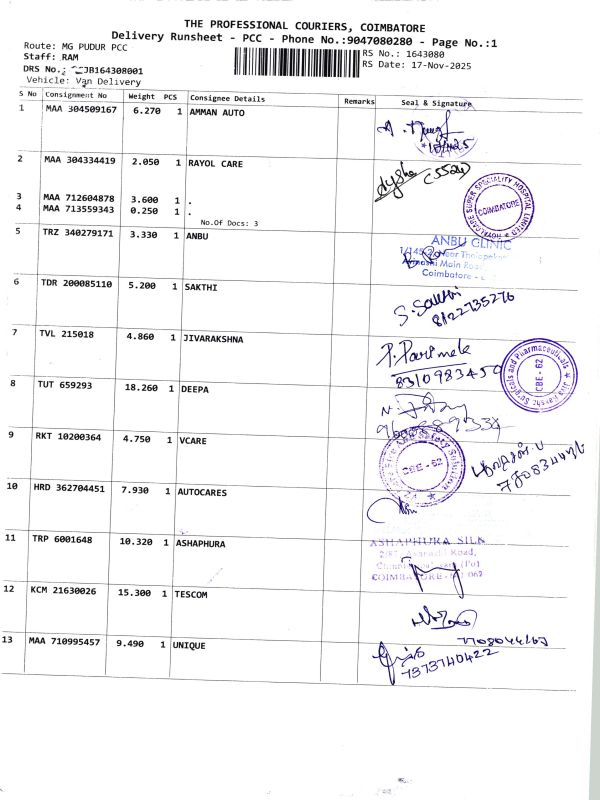 THE PROFESSIONAL COURIERS, COIMBATORE
Delivery Runsheet - PCC - Phone No.:9047080280 - Page No.:1
Route: MG PUDUR PCC
RS No.: 1643080
Staff: RAM
RS Date: 17-Nov-2025
DRS No.: JB164308001
Vehicle: Van Delivery
S No Consignment No Weight PCS Consignee Details Remarks Seal & Signature
1 MAA 304509167 6.270 1 AMMAN AUTO
2 MAA 304334419 2.050 1 RAYOL CARE
Aysha (5524)
ROYALCARE SUPER SPECIALITY HOSPITAL LIMITED
COIMBATORE
3 MAA 712604878 3.600 1 .
4 MAA 713559343 0.250 1 .
No.Of Docs: 3
5 TRZ 340279171 3.330 1 ANBU
ANBU CLINIC
Main Road
Coimbatore -
6 TDR 200085110 5.200 1 SAKTHI
S. Sakthi
8122735276
7 TVL 215018 4.860 1 JIVARAKSHNA
P. Parimela
8310983450
Surgicals and Pharmaceuticals
CBE - 62
8 TUT 659293 18.260 1 DEEPA
9 RKT 10200364 4.750 1 VCARE
Fire And Safety Solution
CBE - 62
10 HRD 362704451 7.930 1 AUTOCARES
11 TRP 6001648 10.320 1 ASHAPHURA
ASHAPHURA SILK
Road,
(Po)
COIMBATORE - 062
12 KCM 21630026 15.300 1 TESCOM
13 MAA 710995457 9.490 1 UNIQUE
7373740422